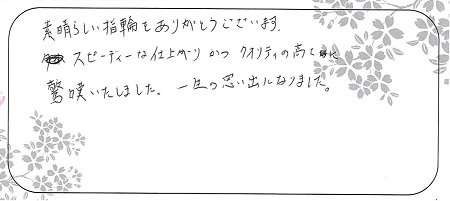 素晴らしい指輪をありがとうございます。
スピーディーな仕上がりかつクオリティの高さに
驚嘆いたしました。一生の思い出になりました。